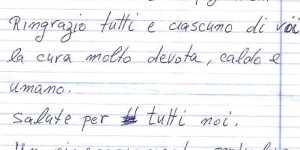 Ringrazio tutti e ciascuno di voi
la cura molto devota, caldo e
umano.
salute per tutti noi.
Un ringraziamento